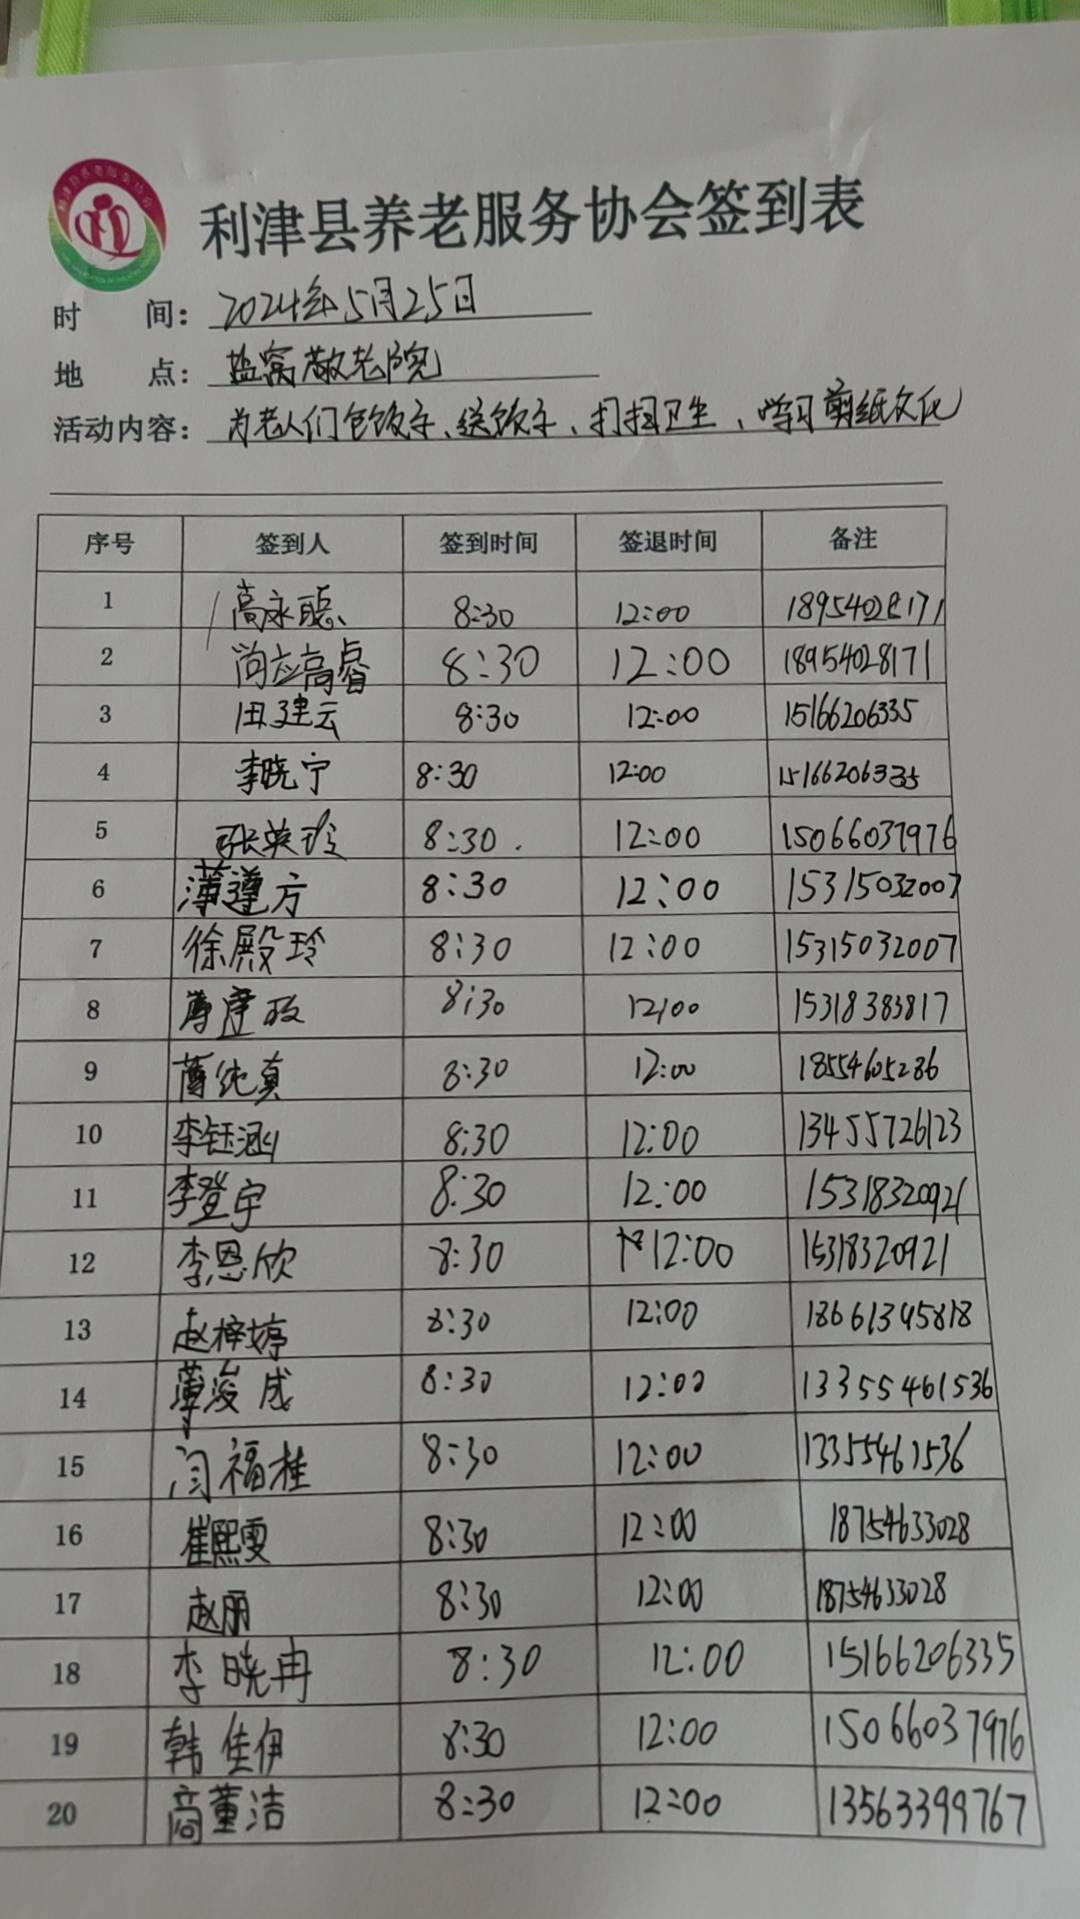 利津县养老服务协会签到表
时 间: 2024年5月25日
地 点: 盐窝敬老院
活动内容: 为老人们包饺子、送饺子、打扫卫生、学习剪纸文化
序号 签到人 签到时间 签退时间 备注
1 高永聪 8:30 12:00
2 尚应高睿 8:30 12:00 18954028171
3 田建云 8:30 12:00 15166206335
4 李晓宁 8:30 12:00 15166206335
5 张英玲 8:30 12:00 15066037976
6 薄遵方 8:30 12:00 15315032007
7 徐殿玲 8:30 12:00 15315032007
8 8:30 12:00 15318383817
9 薄纯真 8:30 12:00 18554605286
10 李钰涵 8:30 12:00 13455726123
11 李登宇 8:30 12:00 15318320921
12 李恩欣 8:30 12:00 15318320921
13 赵梓婷 8:30 12:00 18661395818
14 薄浚成 8:30 12:00 13355461536
15 闫福桂 8:30 12:00 13355461536
16 崔熙雯 8:30 12:00 18754633028
17 赵丽 8:30 12:00 18754633028
18 李晓冉 8:30 12:00 15166206335
19 韩佳伊 8:30 12:00 15066037976
20 商董洁 8:30 12:00 13563399767